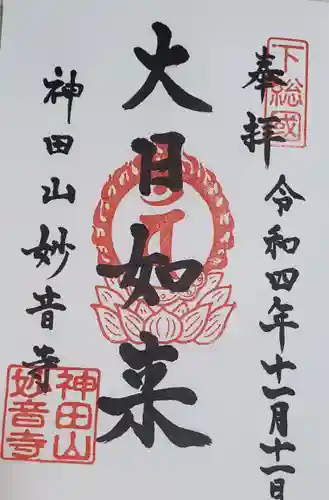 奉拝
下総國
令和四年十一月十一日
大日如来
神田山妙音寺
神田山
妙音寺